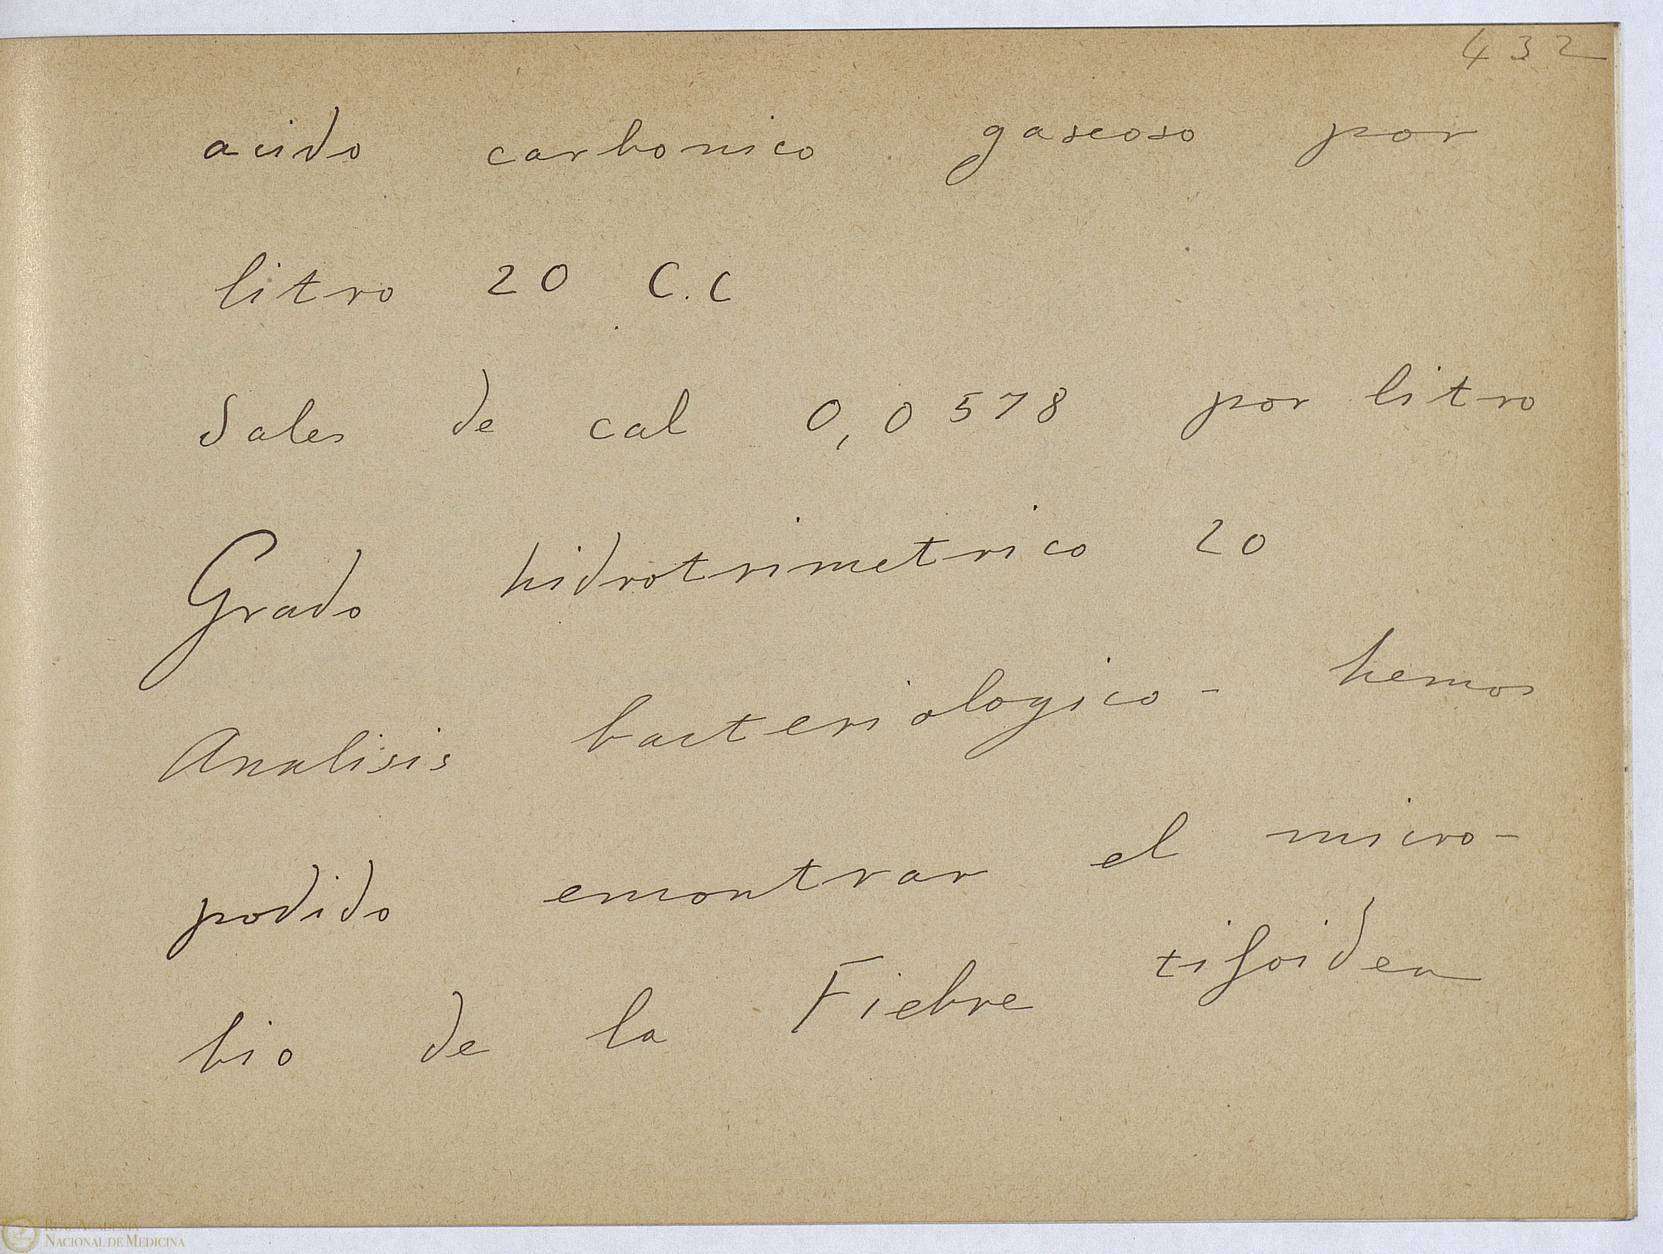 432
acido carbonico gaseoso por
litro 20 C.C
Sales de cal 0,0578 por litro
Grado hidrotrimetrico 20
Analisis bacteriologico - hemos
podido emontrar el micro-
bio de la Fiebre tifoidea
REAL ACADEMIA
NACIONAL DE MEDICINA